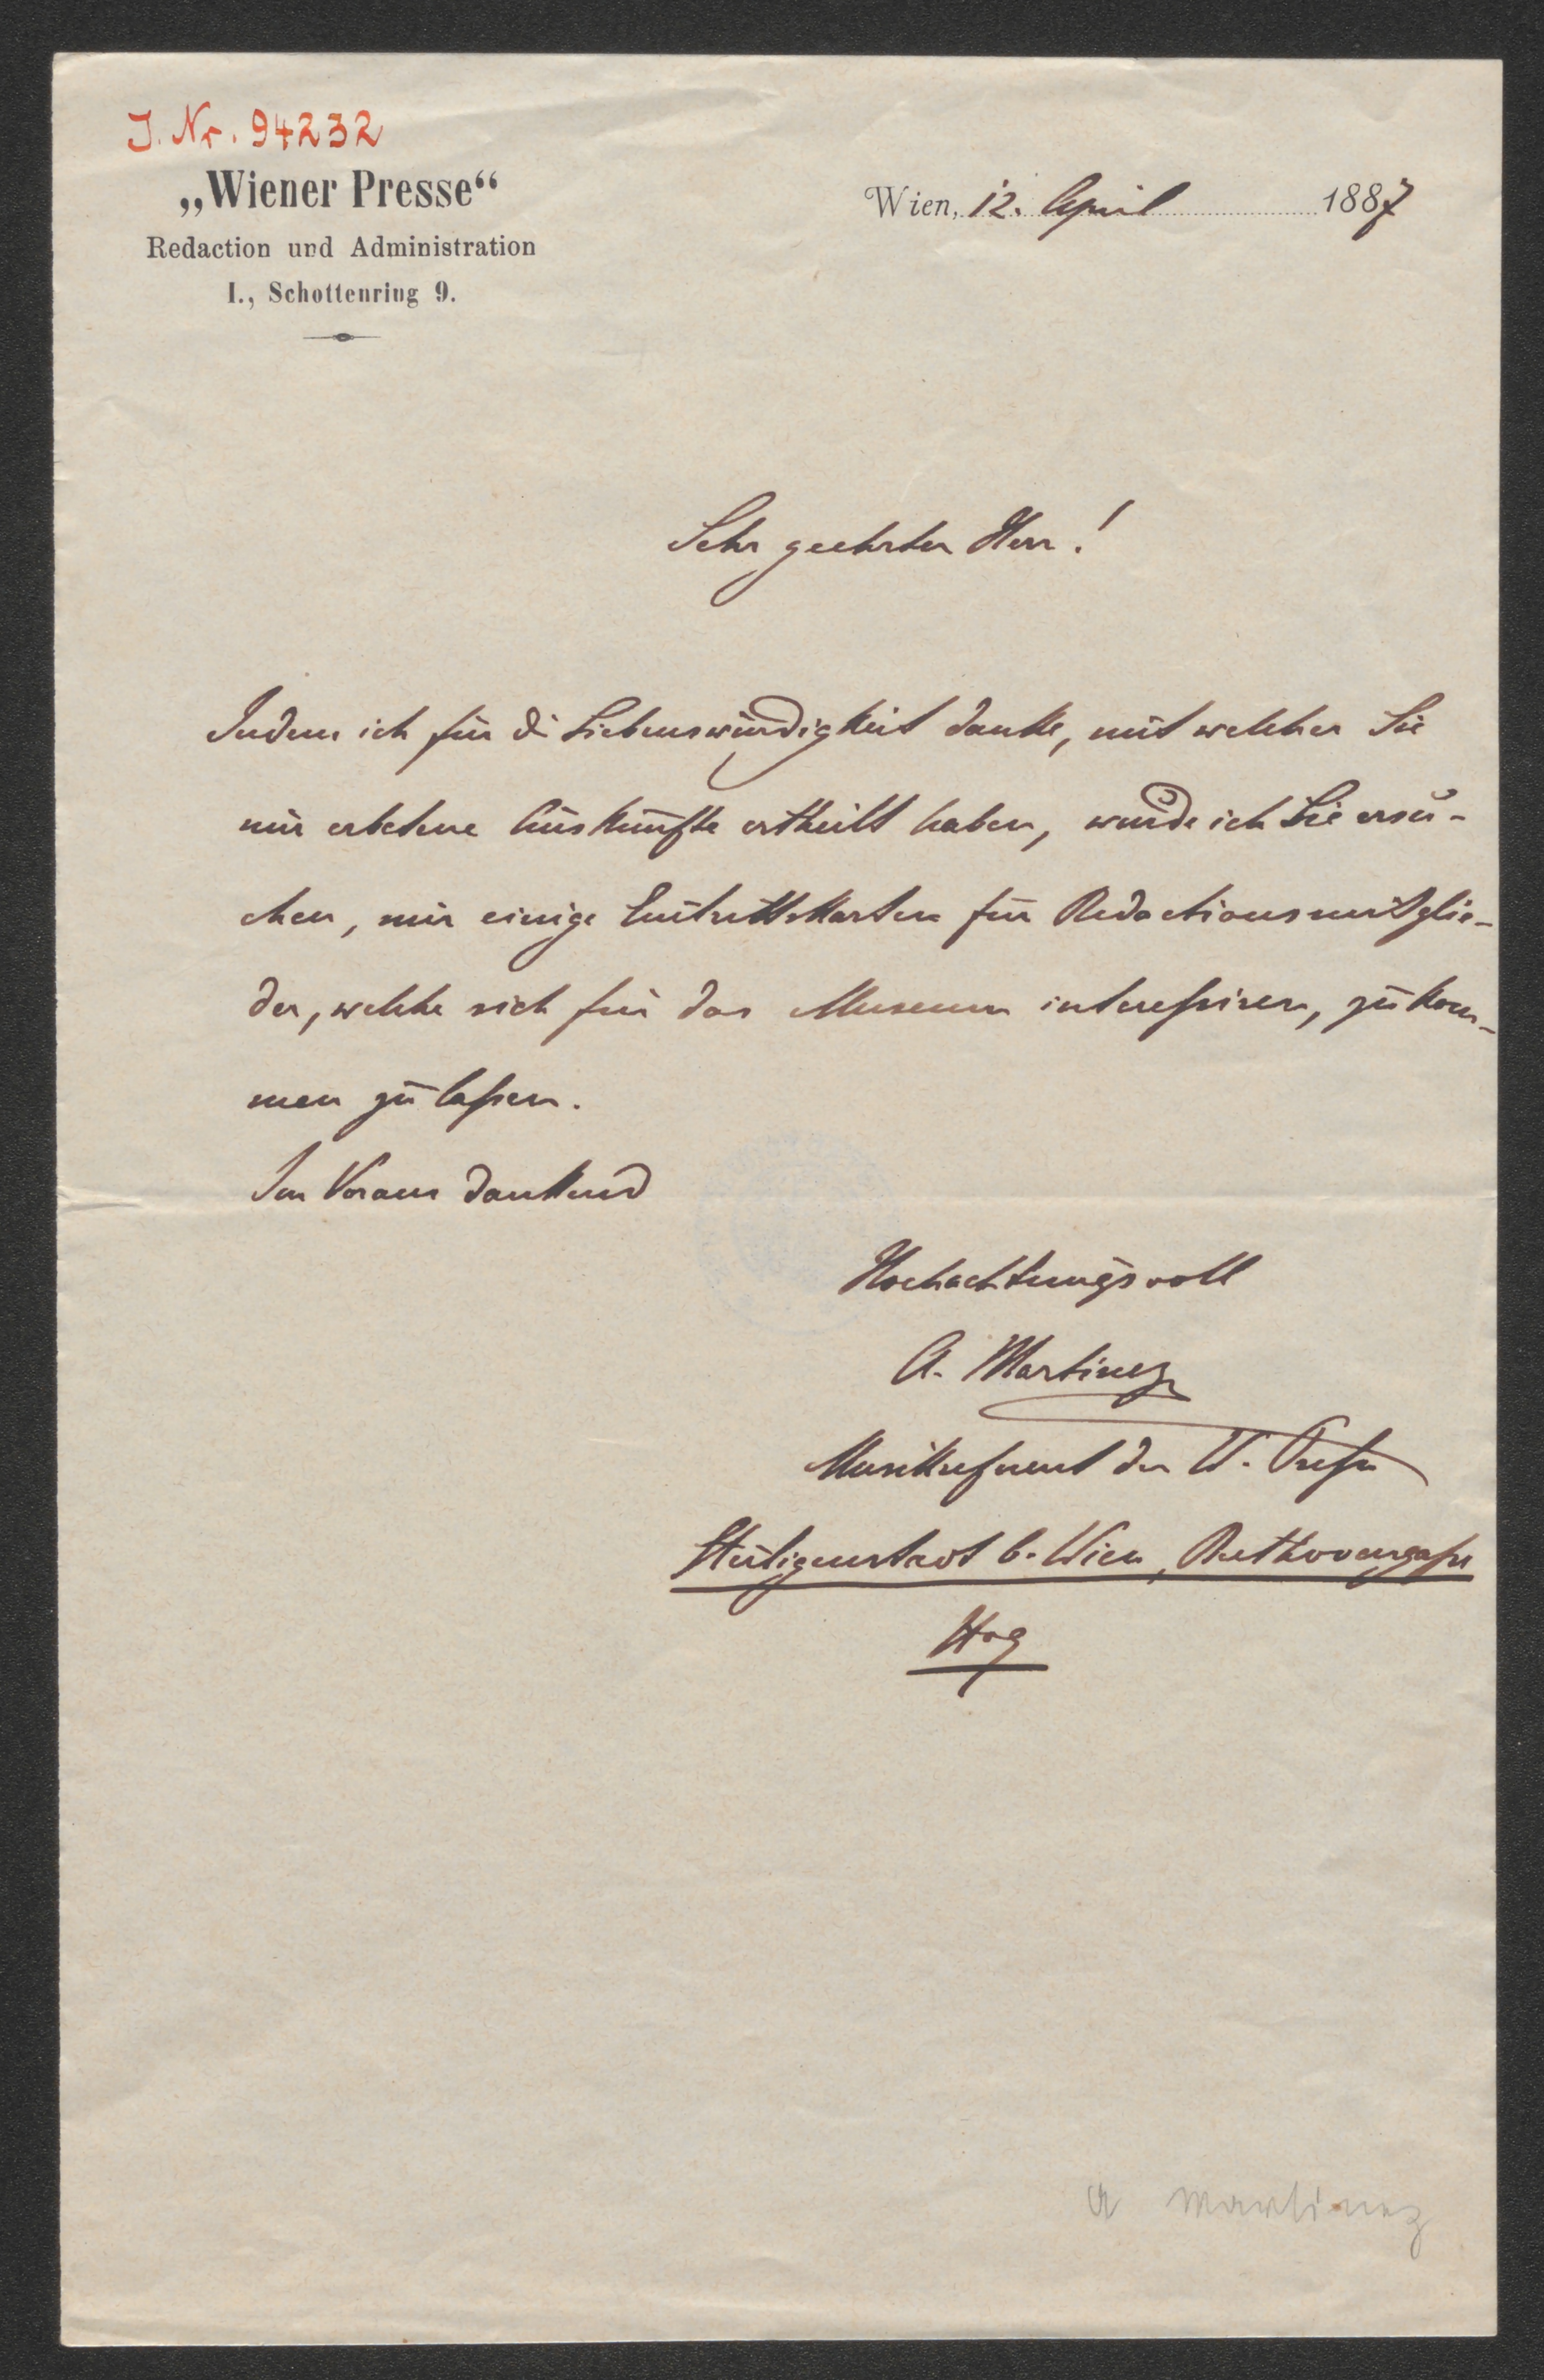 J. Nr. 94232
„Wiener Presse“
Redaction und Administration
I., Schottenring 9.
Wien, 12. April 1887
Sehr geehrter Herr!
Indem ich für die Liebenswürdigkeit danke, mit welcher Sie
mir erbetene Auskünfte ertheilt haben, würde ich Sie ersu-
chen, mir einige Eintrittskarten für Redactionsmitglie-
der, welche sich für das Museum interessiren, zukom-
men zu lassen.
Im Voraus dankend
Hochachtungsvoll
A. Martinez
Musikreferent der W. Presse
Heiligenstadt b. Wien, Beethovengasse
A Martinez